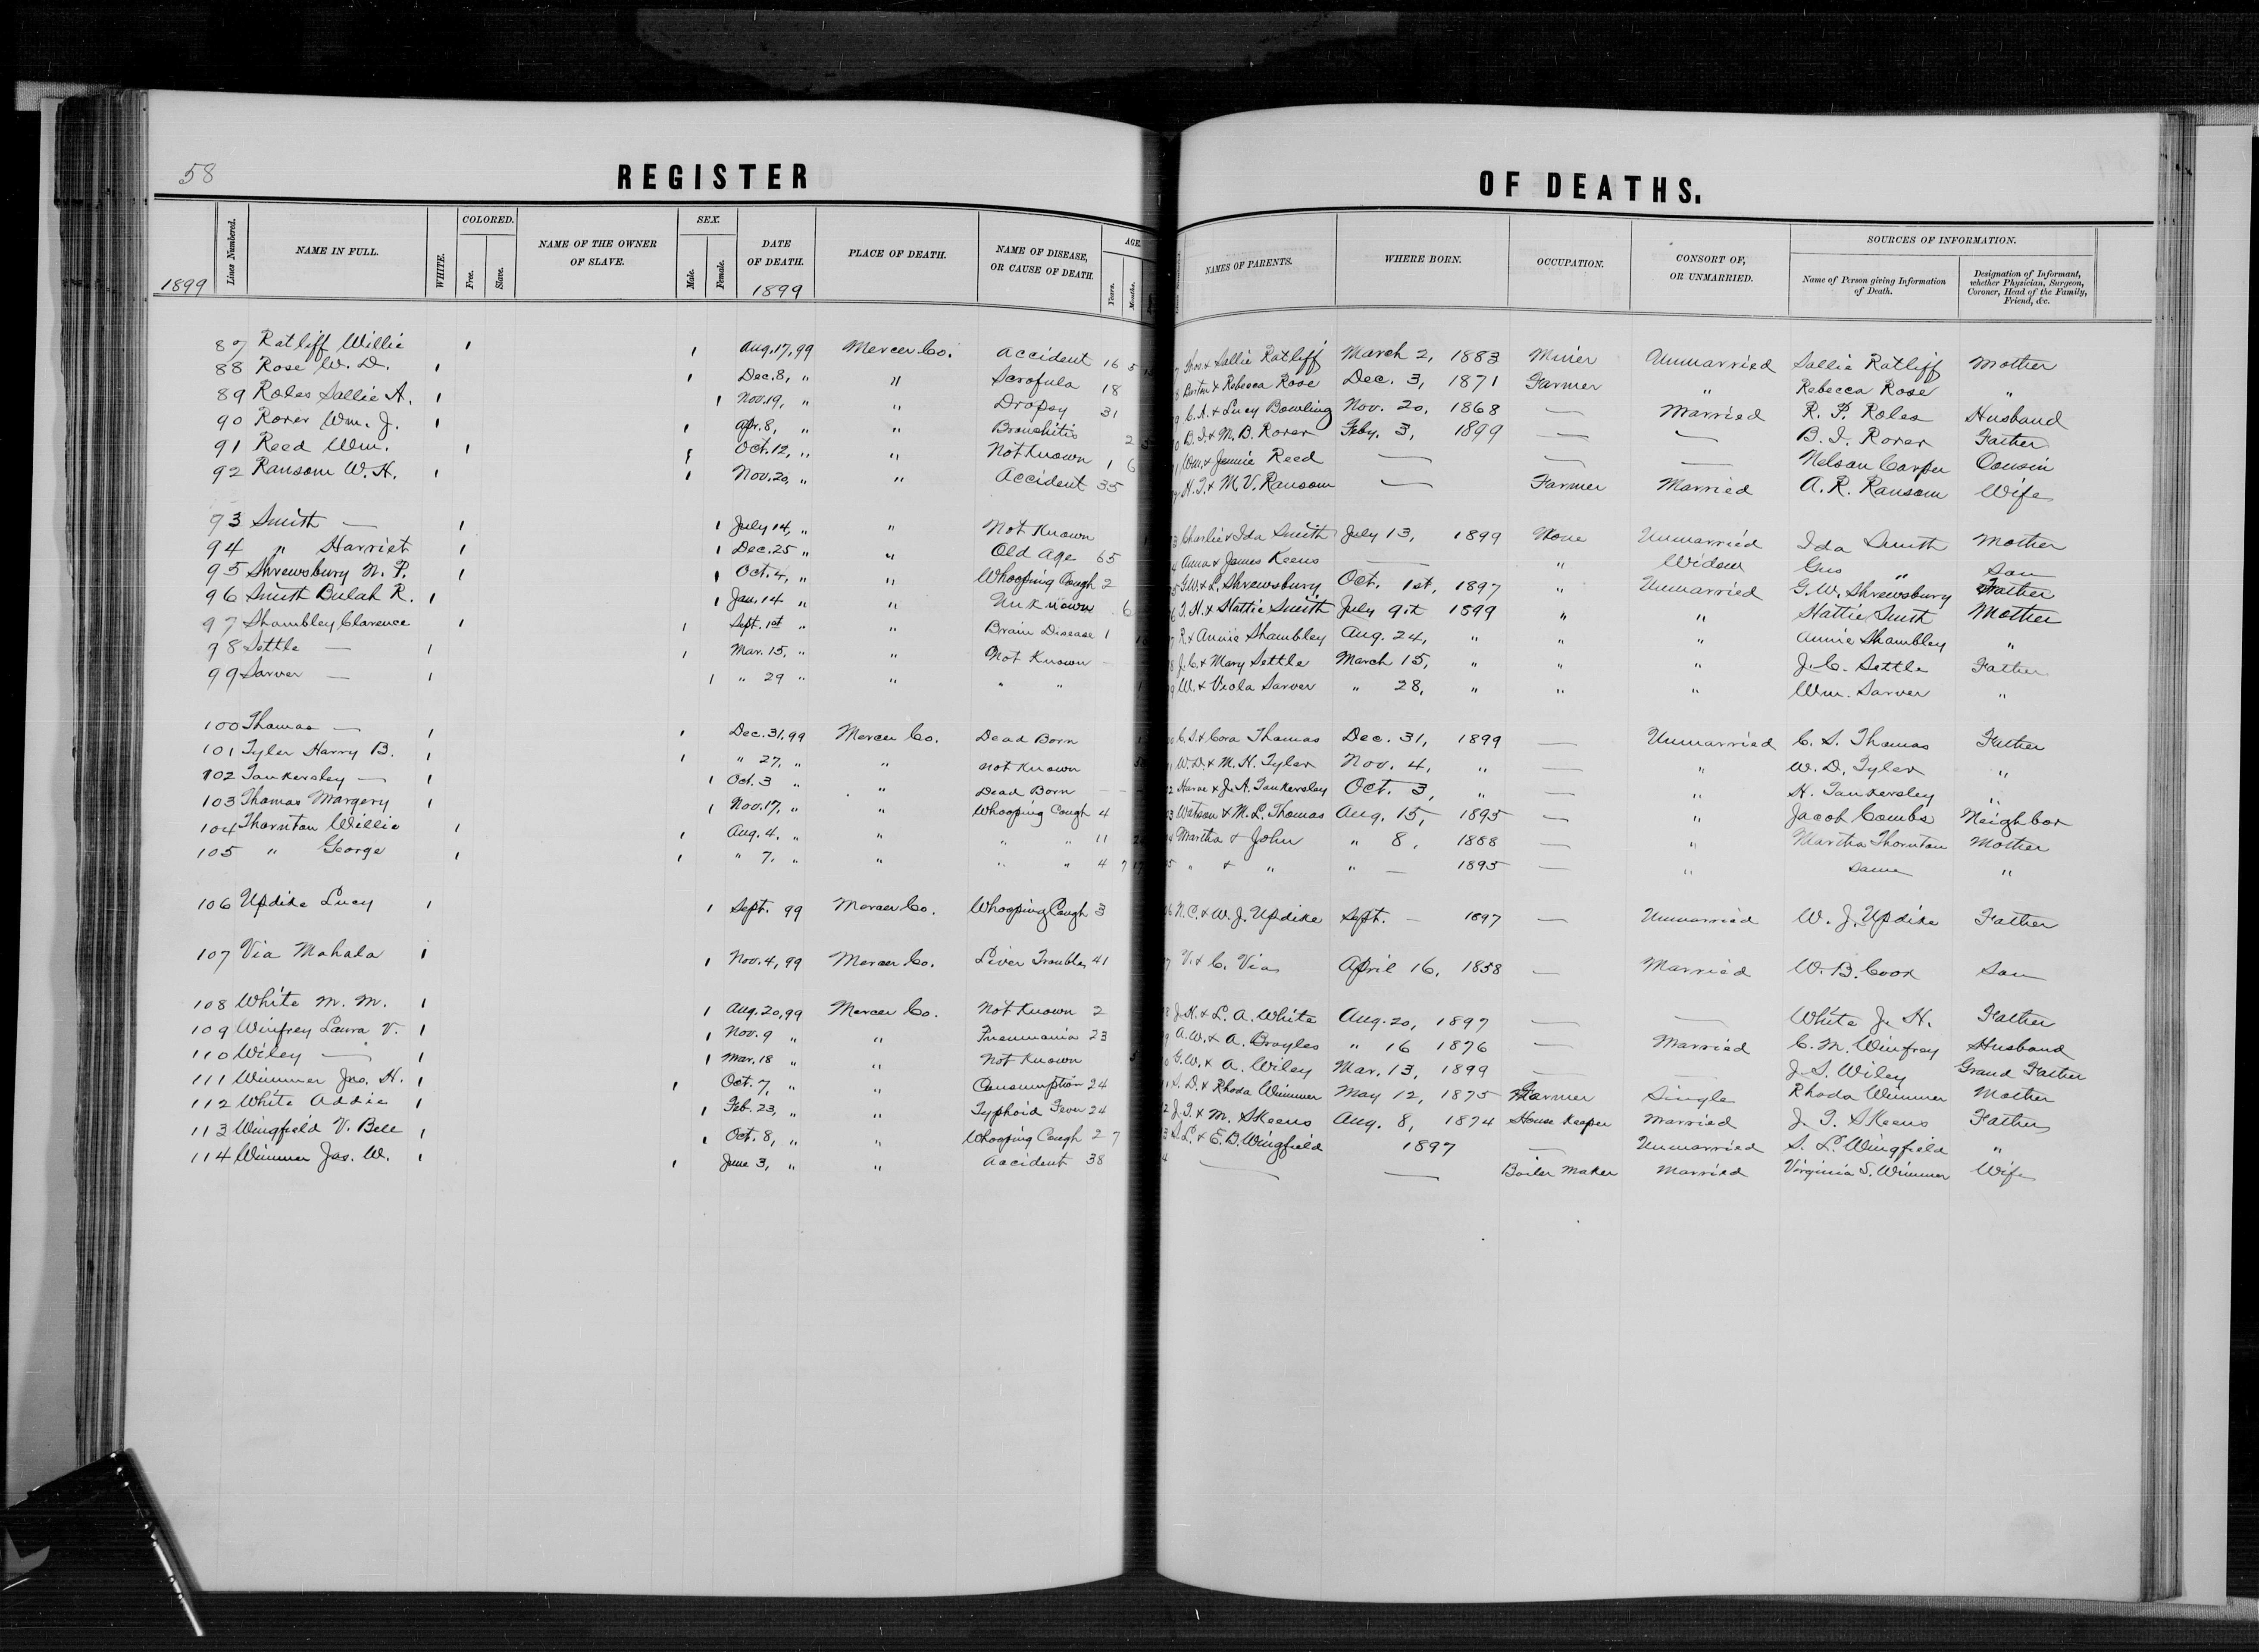 58
REGISTER OF DEATHS.
1899 Lines Numbered. NAME IN FULL. WHITE. COLORED. Free. Slave. NAME OF THE OWNER OF SLAVE. SEX. Male. Female. DATE OF DEATH. 1899 PLACE OF DEATH. NAME OF DISEASE, OR CAUSE OF DEATH. AGE. Years. Months. NAMES OF PARENTS. WHERE BORN. OCCUPATION. CONSORT OF, OR UNMARRIED. SOURCES OF INFORMATION. Name of Person giving Information of Death. Designation of Informant, whether Physician, Surgeon, Coroner, Head of the Family, Friend, &c.
87 Ratliff Willie 1 1 Aug. 17, 99 Mercer Co. Accident 16 5 Thos. & Sallie Ratliff March 2, 1883 Miner Unmarried Sallie Ratliff Mother
88 Rose W. D. 1 1 Dec. 8, " " Scrofula 18 & Rebecca Rose Dec. 3, 1871 Farmer " Rebecca Rose "
89 Roles Sallie A. 1 1 Nov. 19, " " Dropsy 31 C. A. & Lucy Bowling Nov. 20, 1868 — Married R. P. Roles Husband
90 Rorer Wm. J. 1 1 Apr. 8, " " Bronchitis 2 5 B. I. & M. B. Rorer Feby. 3, 1899 — — B. I. Rorer Father
91 Reed Wm. 1 1 Oct. 12, " " Not Known 1 6 Wm. & Jennie Reed — — — Nelson Carper Cousin
92 Ransom W. H. 1 1 Nov. 20, " " Accident 35 H. T. & M. V. Ransom — Farmer Married A. R. Ransom Wife
93 Smith — 1 1 July 14, " " Not Known 1 Charlie & Ida Smith July 13, 1899 None Unmarried Ida Smith Mother
94 " Harriet 1 1 Dec. 25 " " Old Age 65 Anna & James Keens — " Widow Gus " Son
95 Shrewsbury N. P. 1 1 Oct. 4, " " Whooping Cough 2 G.W. & L. Shrewsbury Oct. 1st, 1897 " Unmarried G. W. Shrewsbury Father
96 Smith Bulah R. 1 1 Jan. 14 " " Unknown 6 T. H. & Hattie Smith July 9th 1899 " " Hattie Smith Mother
97 Shambley Clarence 1 1 Sept. 1st " " Brain Disease 1 R & Annie Shambley Aug. 24, " " " Annie Shambley "
98 Settle — 1 1 Mar. 15, " " Not Known — J. C. & Mary Settle March 15, " " " J. C. Settle Father
99 Sarver — 1 1 " 29 " " " " 1 W. & Viola Sarver " 28, " " " Wm. Sarver "
100 Thomas — 1 1 Dec. 31, 99 Mercer Co. Dead Born C. S. & Cora Thomas Dec. 31, 1899 — Unmarried C. S. Thomas Father
101 Tyler Harry B. 1 1 " 27, " " Not Known W. D. & M. H. Tyler Nov. 4, " — " W. D. Tyler "
102 Tankersley — 1 1 Oct. 3 " " Dead Born — — & J. A. Tankersley Oct. 3, " — " H. Tankersley "
103 Thomas Margery 1 1 Nov. 17, " " Whooping Cough 4 Watson & M. L. Thomas Aug. 15, 1895 — " Jacob Combs Neighbor
104 Thornton Willie 1 1 Aug. 4, " " " " 11 Martha & John " 8, 1888 — " Martha Thornton Mother
105 " George 1 1 " 7, " " " " 4 7 17 " & " " — 1895 — " Same "
106 Updike Lucy 1 1 Sept. 99 Mercer Co. Whooping Cough 3 N. C. & W. J. Updike Sept. — 1897 — Unmarried W. J. Updike Father
107 Via Mahala 1 1 Nov. 4, 99 Mercer Co. Liver Trouble 41 V. & C. Via April 16, 1858 — Married W. B. Cook Son
108 White M. M. 1 1 Aug. 20, 99 Mercer Co. Not Known 2 J. H. & L. A. White Aug. 20, 1897 — — White J. H. Father
109 Winfrey Laura V. 1 1 Nov. 9 " " Pneumonia 23 A. W. & A. Broyles " 16 1876 — Married C. M. Winfrey Husband
110 Wiley — 1 1 Mar. 18 " " Not Known 5 G. W. & A. Wiley Mar. 13, 1899 — — J. S. Wiley Grand Father
111 Wimmer Jas. H. 1 1 Oct. 7, " " Consumption 24 S. D. & Rhoda Wimmer May 12, 1875 Farmer Single Rhoda Wimmer Mother
112 White Addie 1 1 Feb. 23, " " Typhoid Fever 24 J. T. & M. Skeens Aug. 8, 1874 House Keeper Married J. T. Skeens Father
113 Wingfield V. Bell 1 1 Oct. 8, " " Whooping Cough 2 7 S. L. & E. B. Wingfield 1897 — Unmarried S. L. Wingfield "
114 Wimmer Jas. W. 1 1 June 3, " " Accident 38 — — Boiler Maker Married Virginia S. Wimmer Wife